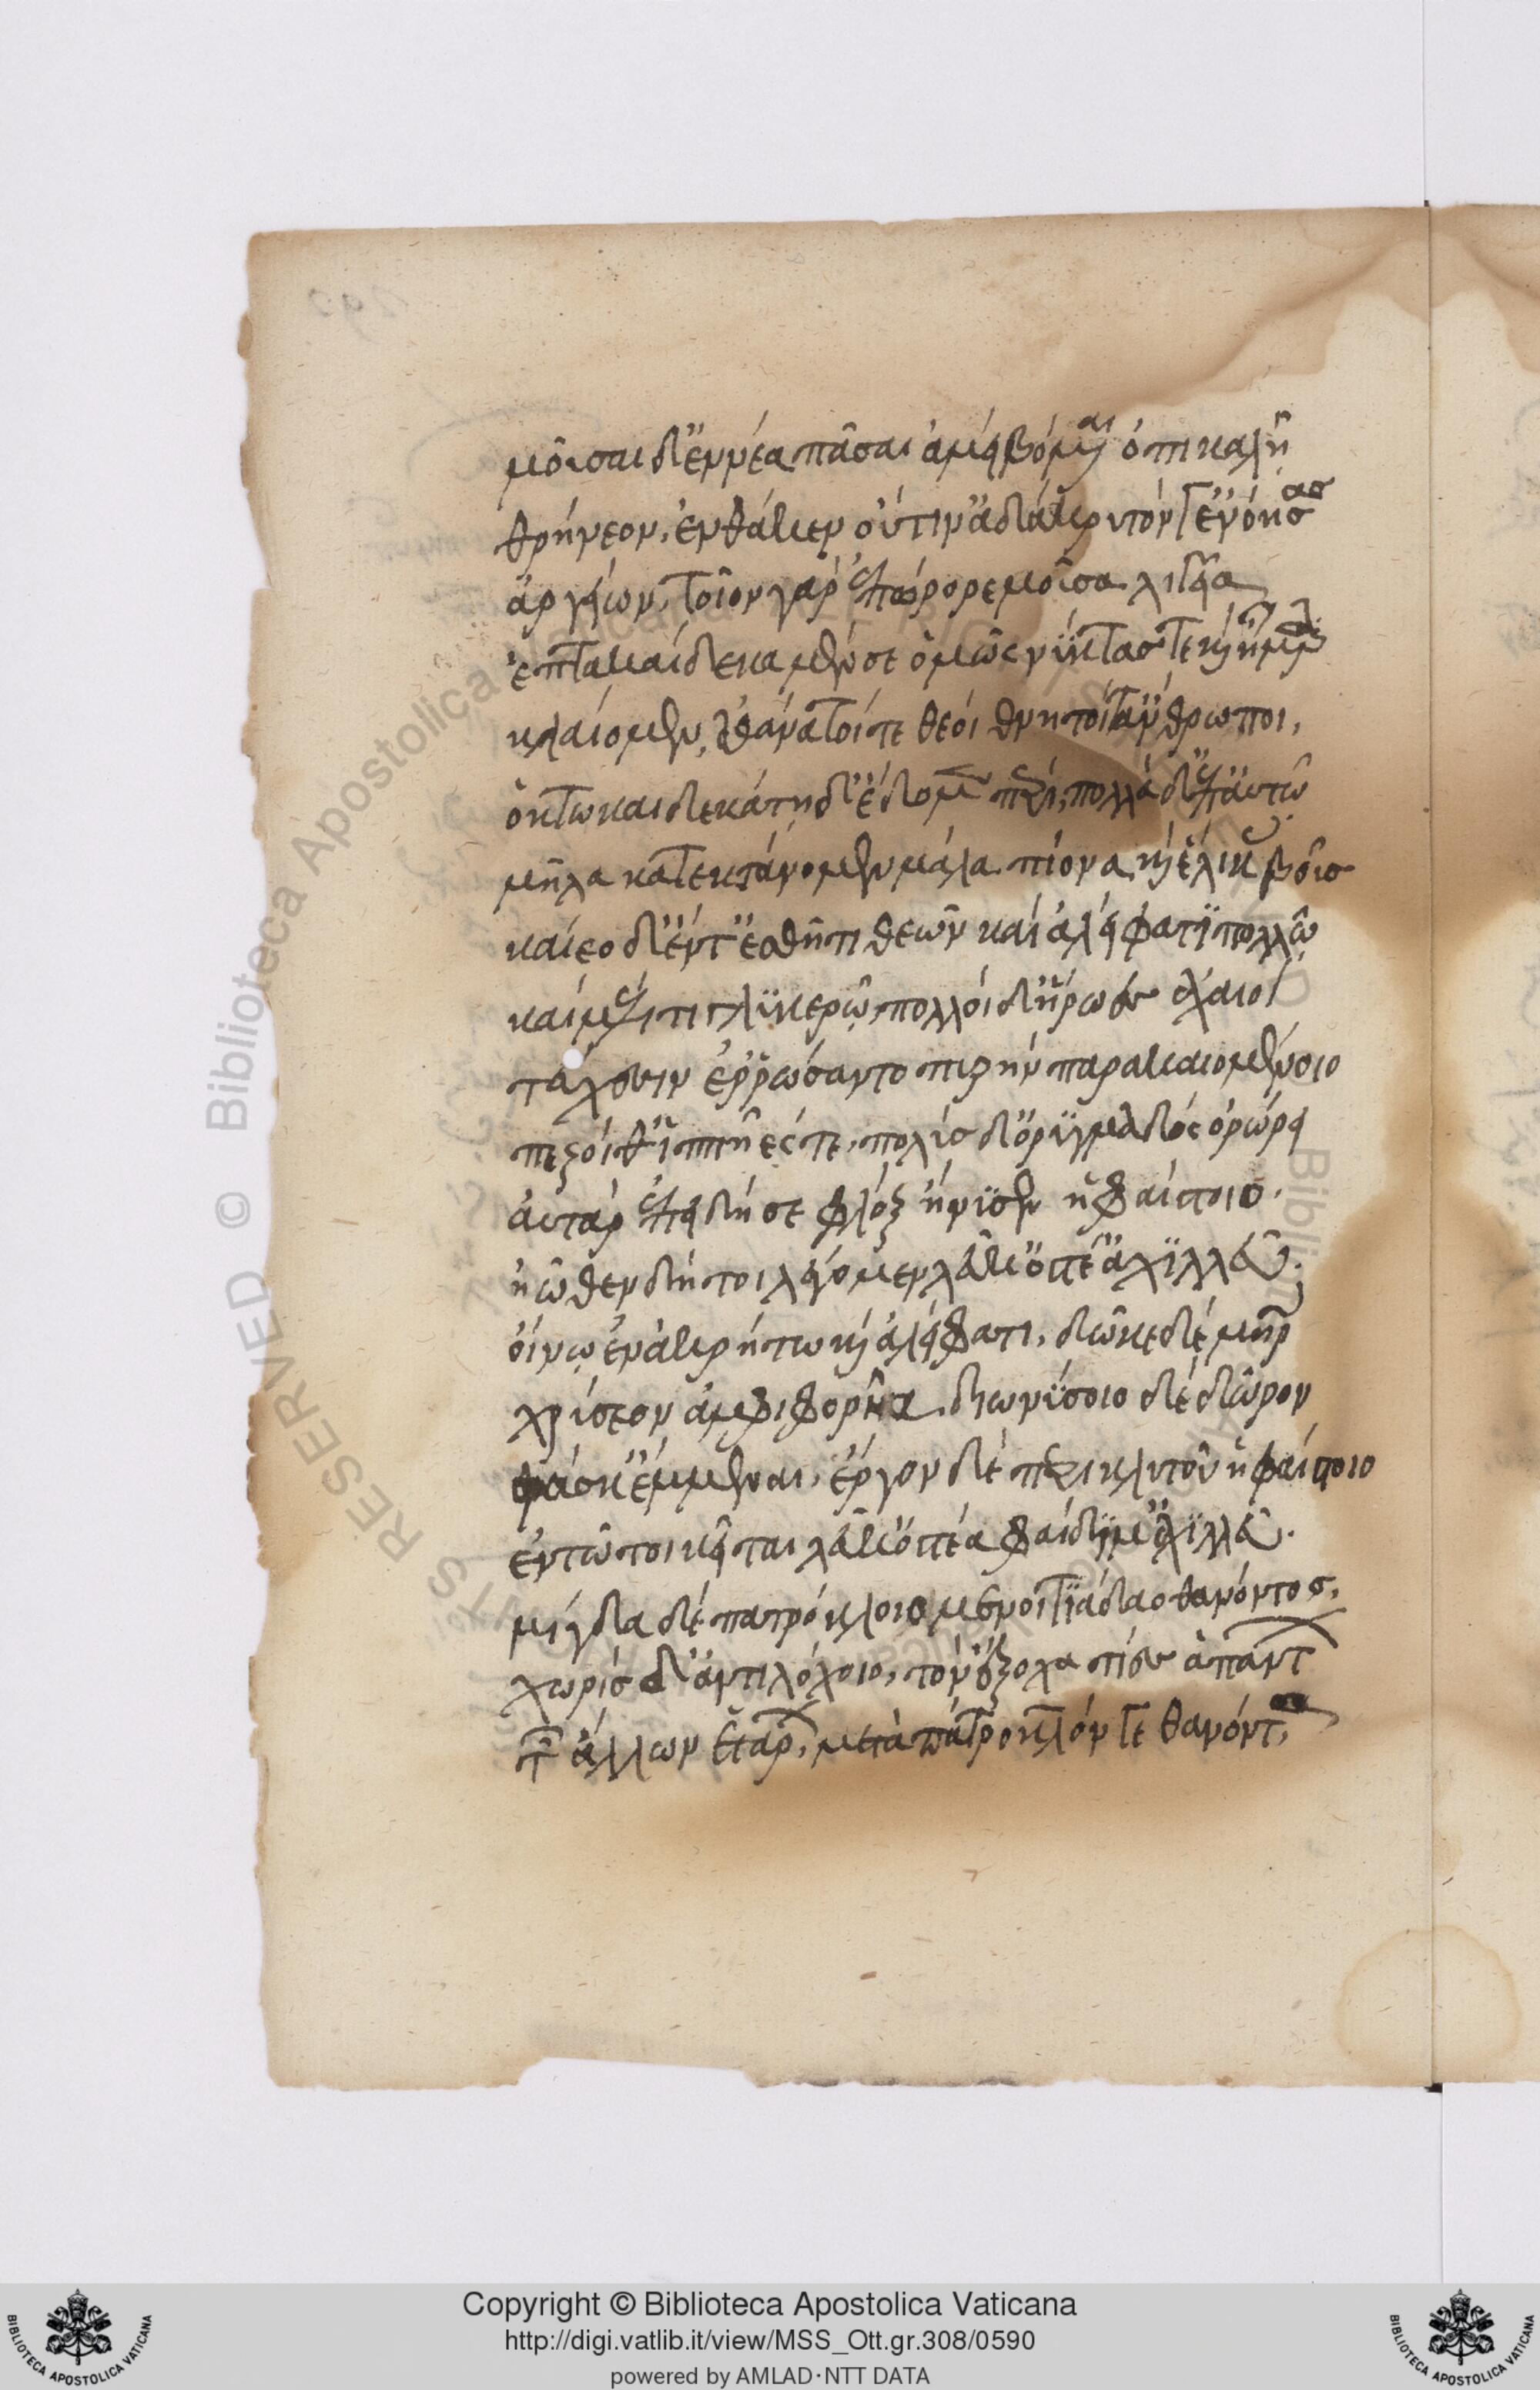 μοῦσαι δ' ἐννέα πᾶσαι ἀμειβόμεναι ὀπὶ καλῇ
θρήνεον, ἔνθά κεν οὔτιν' ἀδάκρυτόν γ' ἐνόησας
ἀργείων, τοῖον γὰρ ὑπώρορε μοῦσα λίγεια
ἑπτὰ καὶ δέκα μέν σε ὁμῶς νύκτας τε καὶ ἦμαρ
κλαίομεν, ἀθάνατοί τε θεοὶ θνητοί τ' ἄνθρωποι,
ὀκτωκαιδεκάτῃ δ' ἔδομεν πυρί, πολλὰ δ' ἐπ' αὐτῷ
μῆλα κατεκτάνομεν μάλα πίονα, καὶ ἕλικας βοῦς
καίεο δ' ἔν τ' ἐσθῆτι θεῶν καὶ ἀλείφατι πολλῷ
καὶ μέλιτι γλυκερῷ, πολλοὶ δ' ἥρωες ἀχαιοὶ
τεύχεσιν ἐρρώσαντο πυρὴν πάρα καιομένοιο
πεζοί θ' ἱππῆές τε, πολὺς δ' ὀρυμαγδὸς ὀρώρει
αὐτὰρ ἐπεὶ δή σε φλὸξ ἤνυσεν ἡφαίστοιο.
ἠῶθεν δή τοι λέγομεν λεύκ' ὀστέ' ἀχιλλεῦ.
οἴνῳ ἐν ἀκρήτῳ καὶ ἀλείφατι, δῶκε δὲ μήτηρ
χρύσεον ἀμφιφορῆα. διωνύσοιο δὲ δῶρον
φάσκ' ἔμμεναι, ἔργον δὲ περικλυτοῦ ἡφαίστοιο
ἐν τῷ τοι κεῖται λεύκ' ὀστέα φαίδιμ' ἀχιλλεῦ.
μίγδα δὲ πατρόκλοιο μενοιτιάδαο θανόντος,
χωρὶς δ' ἀντιλόχοιο, τὸν ἔξοχα τῖες ἁπάντων
τῶν ἄλλων ἑτάρων, μετὰ πάτροκλόν γε θανόντα,
Copyright © Biblioteca Apostolica Vaticana
http://digi.vatlib.it/view/MSS_Ott.gr.308/0590
powered by AMLAD·NTT DATA